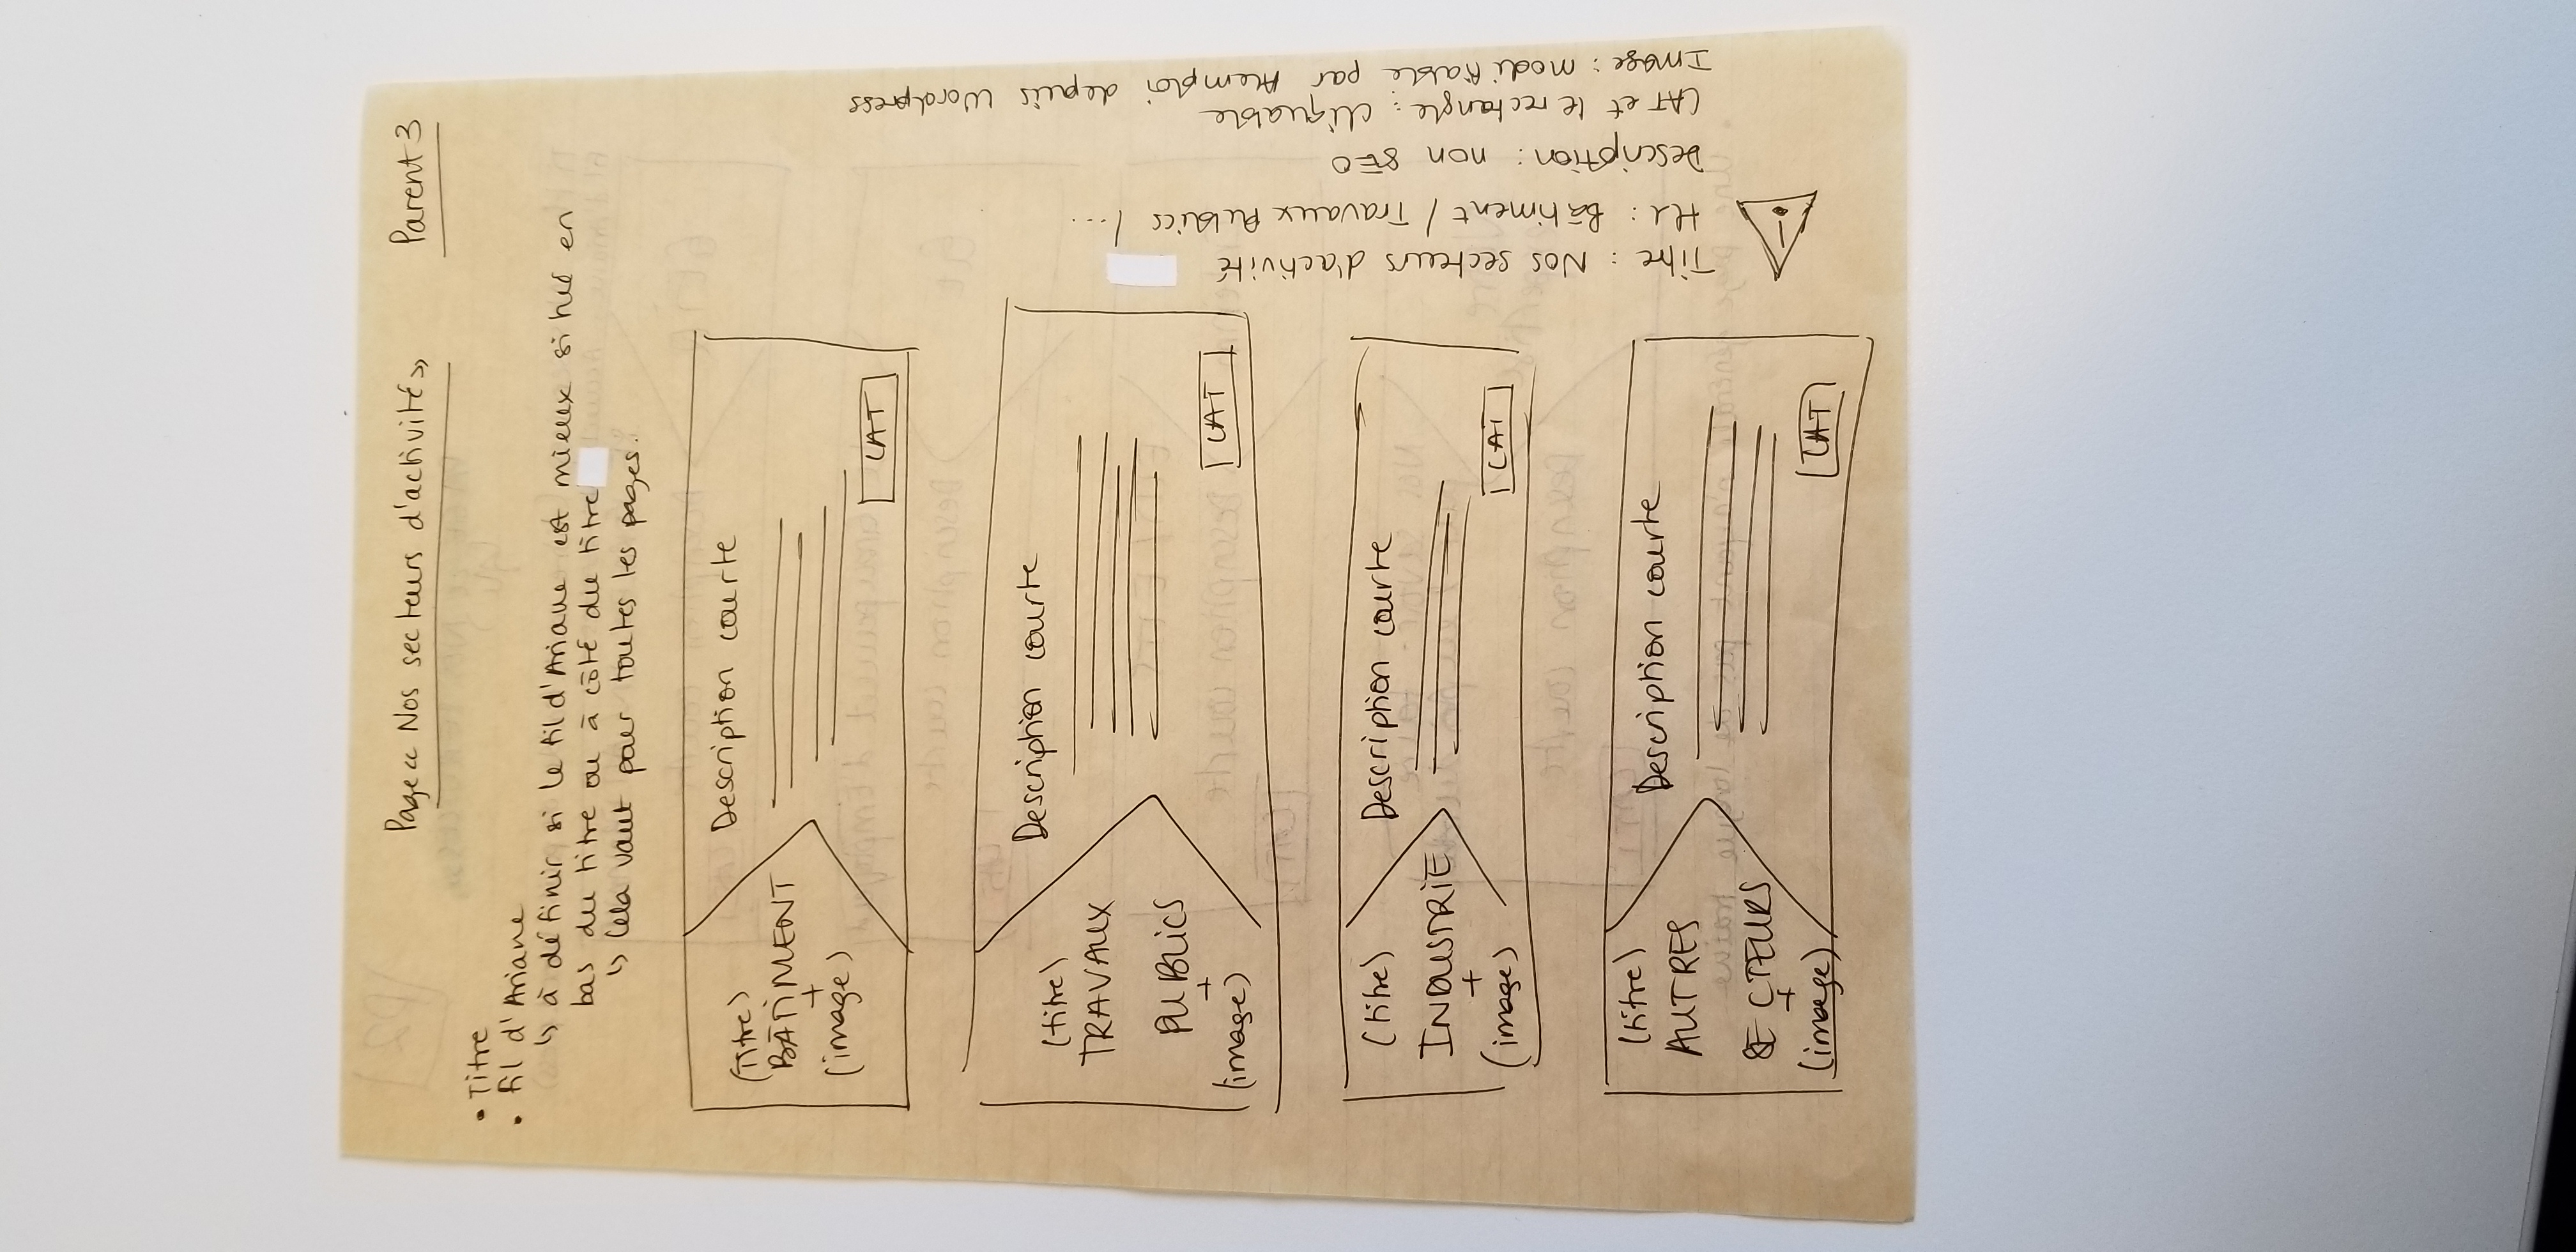 Page « Nos secteurs d'activité »
Parent 3
• Titre
• fil d'Ariane
↳ à définir si le fil d'Ariane est mieux situé en
bas du titre ou à côté du titre
↳ Cela vaut pour toutes les pages.
(Titre)
BÂTIMENT
+
(image)
Description courte
CAT
(titre)
TRAVAUX
PUBLICS
+
(image)
Description courte
CAT
(titre)
INDUSTRIE
+
(image)
Description courte
CAT
(titre)
AUTRES
SECTEURS
+
(image)
Description courte
CAT
Titre : Nos secteurs d'activité
H1 : Bâtiment / Travaux Publics / ...
Description : non SEO
CAT et le rectangle : cliquable
Image : modifiable par depuis Wordpress